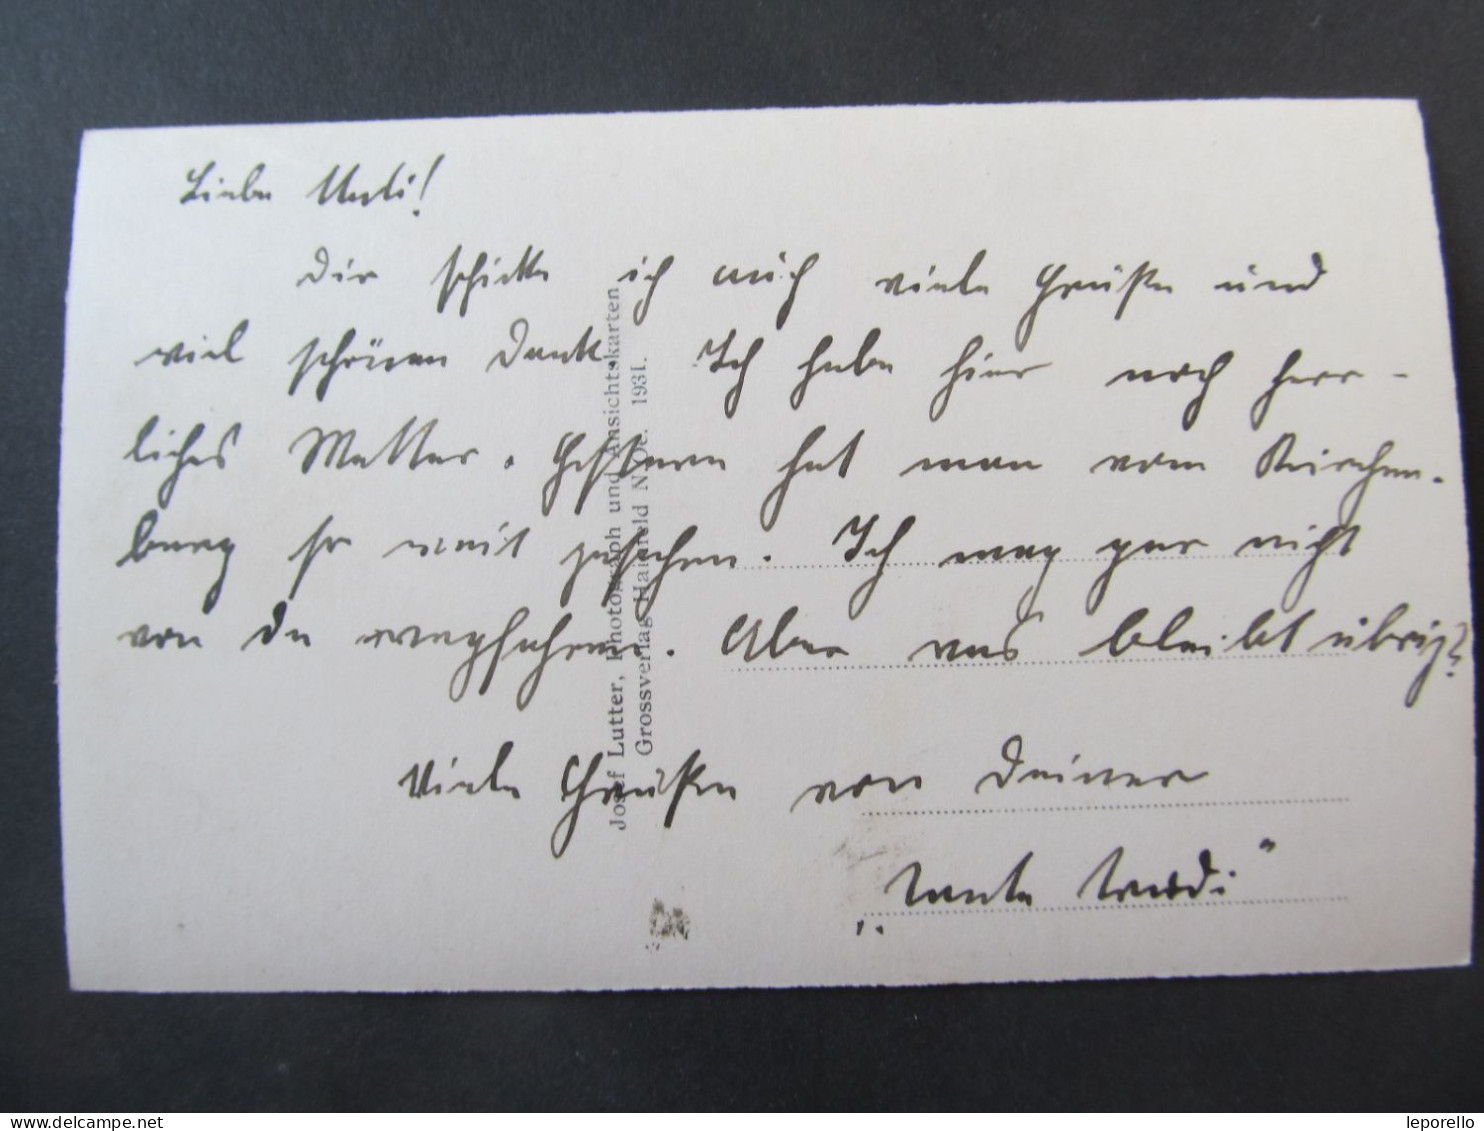 Liebe Uuli!
Dir schicke ich auch viele Grüße und
viel schönen Dank. Ich habe hier noch herr-
liches Wetter. Gestern hat man vom Kirchen-
berg so weit gesehen. Ich mag gar nicht
von da wegfahren. Aber was bleibt übrig?
Viele Grüße von Deiner
„Tante Trudi"
Josef Lutter, Photograph und Ansichtskarten
Grossverlag Hainfeld N. Oe. 1931.
leporello
www.delcampe.net